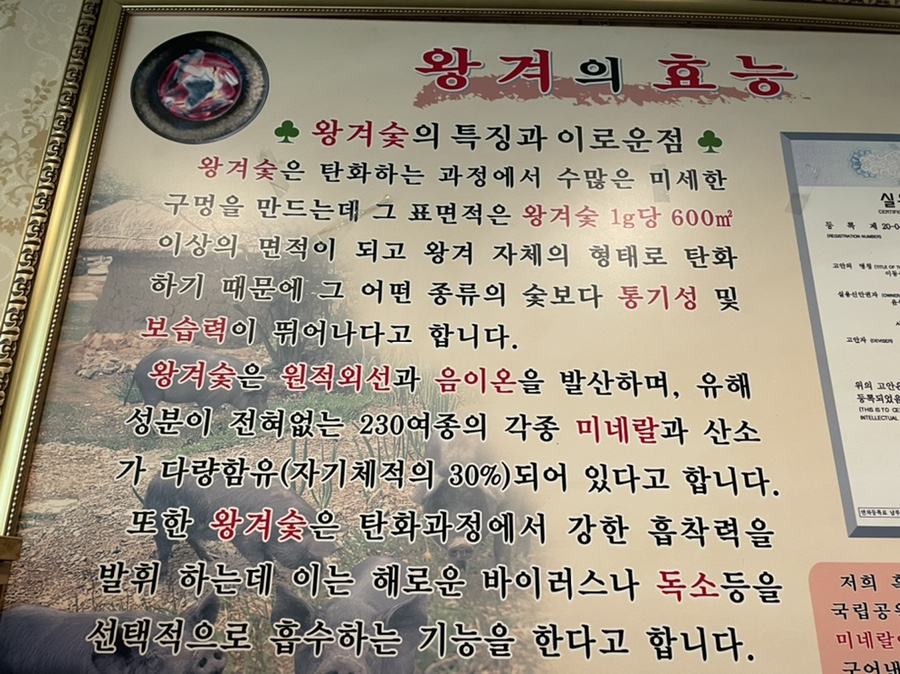 왕겨의 효능
♣ 왕겨숯의 특징과 이로운점 ♣
왕겨숯은 탄화하는 과정에서 수많은 미세한
구멍을 만드는데 그 표면적은 왕겨숯 1g당 600㎡
이상의 면적이 되고 왕겨 자체의 형태로 탄화
하기 때문에 그 어떤 종류의 숯보다 통기성 및
보습력이 뛰어나다고 합니다.
왕겨숯은 원적외선과 음이온을 발산하며, 유해
성분이 전혀없는 230여종의 각종 미네랄과 산소
가 다량함유(자기체적의 30%)되어 있다고 합니다.
또한 왕겨숯은 탄화과정에서 강한 흡착력을
발휘 하는데 이는 해로운 바이러스나 독소등을
선택적으로 흡수하는 기능을 한다고 합니다.
등 록 제 20-0
(REGISTRATION NUMBER)
고안의 명칭 (TITLE OF
실용신안권자
고안자
위의 고안은
등록되었음
(THIS IS TO
INTELLECTUAL
저희
국립공
미네랄